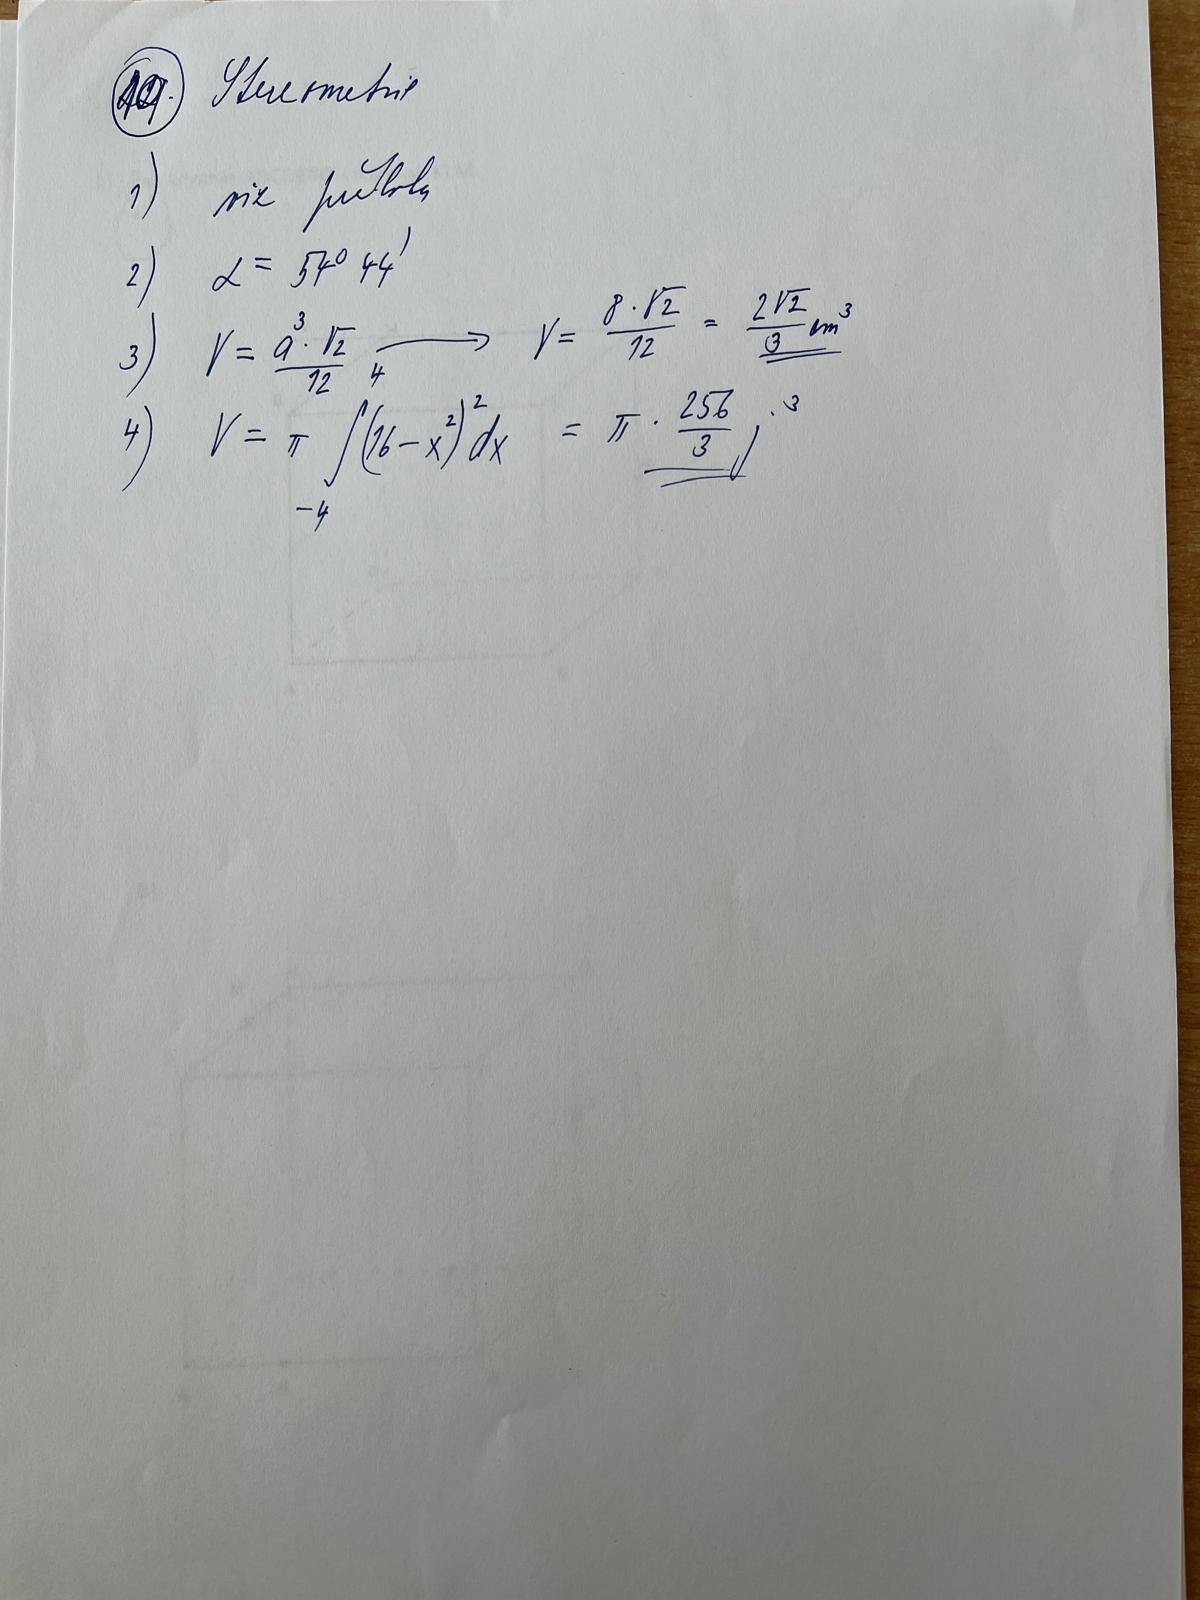 Stereometrie
1) viz příloha
2) α = 54° 44'
3) V = a³·√2/12 → V = 8·√2/12 = 2√2/3 cm³
4) V = π ∫₋₄⁴ (16-x²)² dx = π · 256/3 j.³